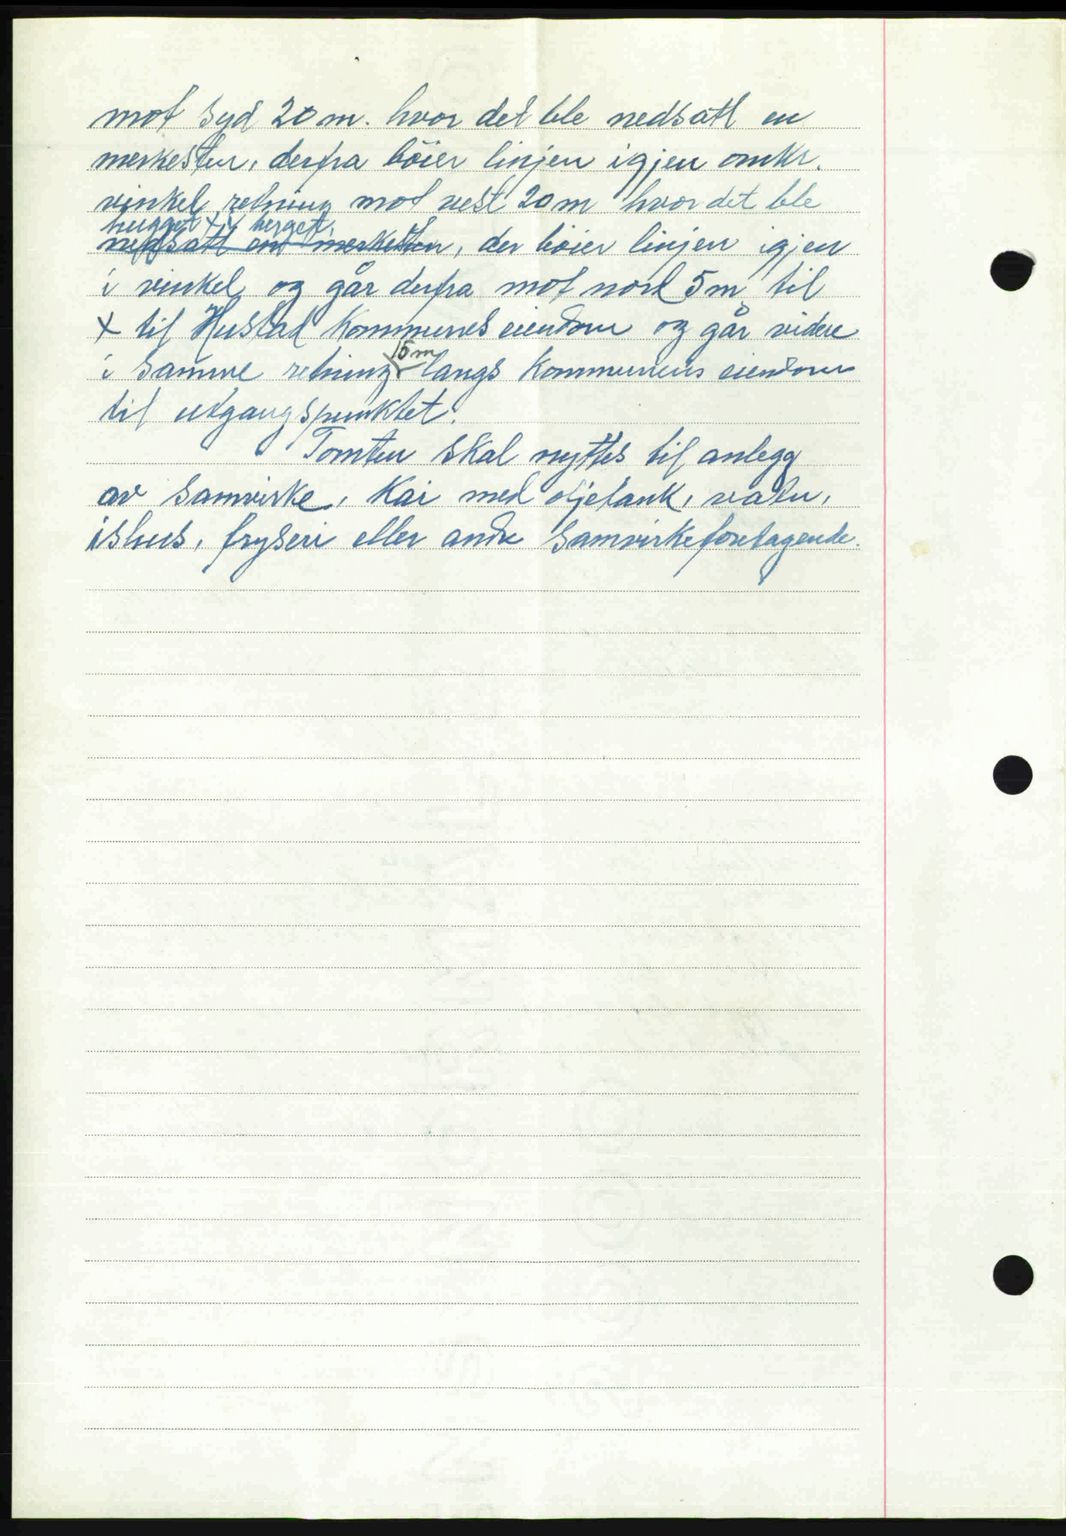 mot syd 20 m. hvor det ble nedsatt en
merkesten, derfra bøier linjen igjen omkr.
vinkel retning mot vest 20 m hvor det ble
hugget + i berget,
nedsatt en merkesten, der bøier linjen igjen
i vinkel og går derfra mot nord 5 m til
+ til Hustad Kommunes eiendom og går videre
15 m
i samme retning langs Kommunens eiendom
til utgangspunktet.
Tomten skal nyttes til anlegg
av samvirke, Kai med oljetank,
ishus, fryseri eller andre Samvirkeforetagende.